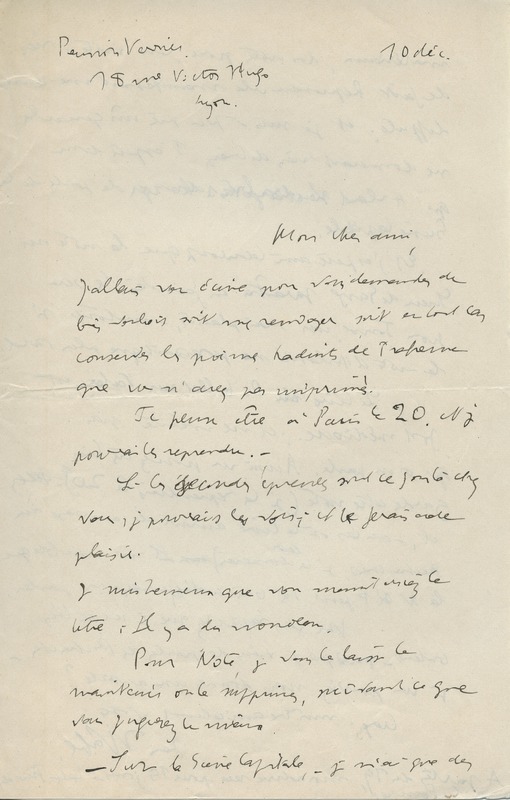 Pension Verrier.
10 déc.
18 rue Victor Hugo
Lyon.
Mon cher ami,
J'allais vous écrire pour vous demander de
bien vouloir soit me renvoyer soit en tout cas
conserver les poèmes traduits de
que vous n'avez pas imprimés.
Je pense être à Paris le 20. Et je
pourrai les reprendre. –
Si les secondes épreuves sont ce jour là chez
vous, je pourrais les voir, et le ferais avec
plaisir.
que vous le
titre : Il y a du
Pour Note, je vous le laisse le
maintenir ou le supprimer, suivant ce que
vous jugerez le mieux.
– Sur la Scène Capitale, – je n'ai que des